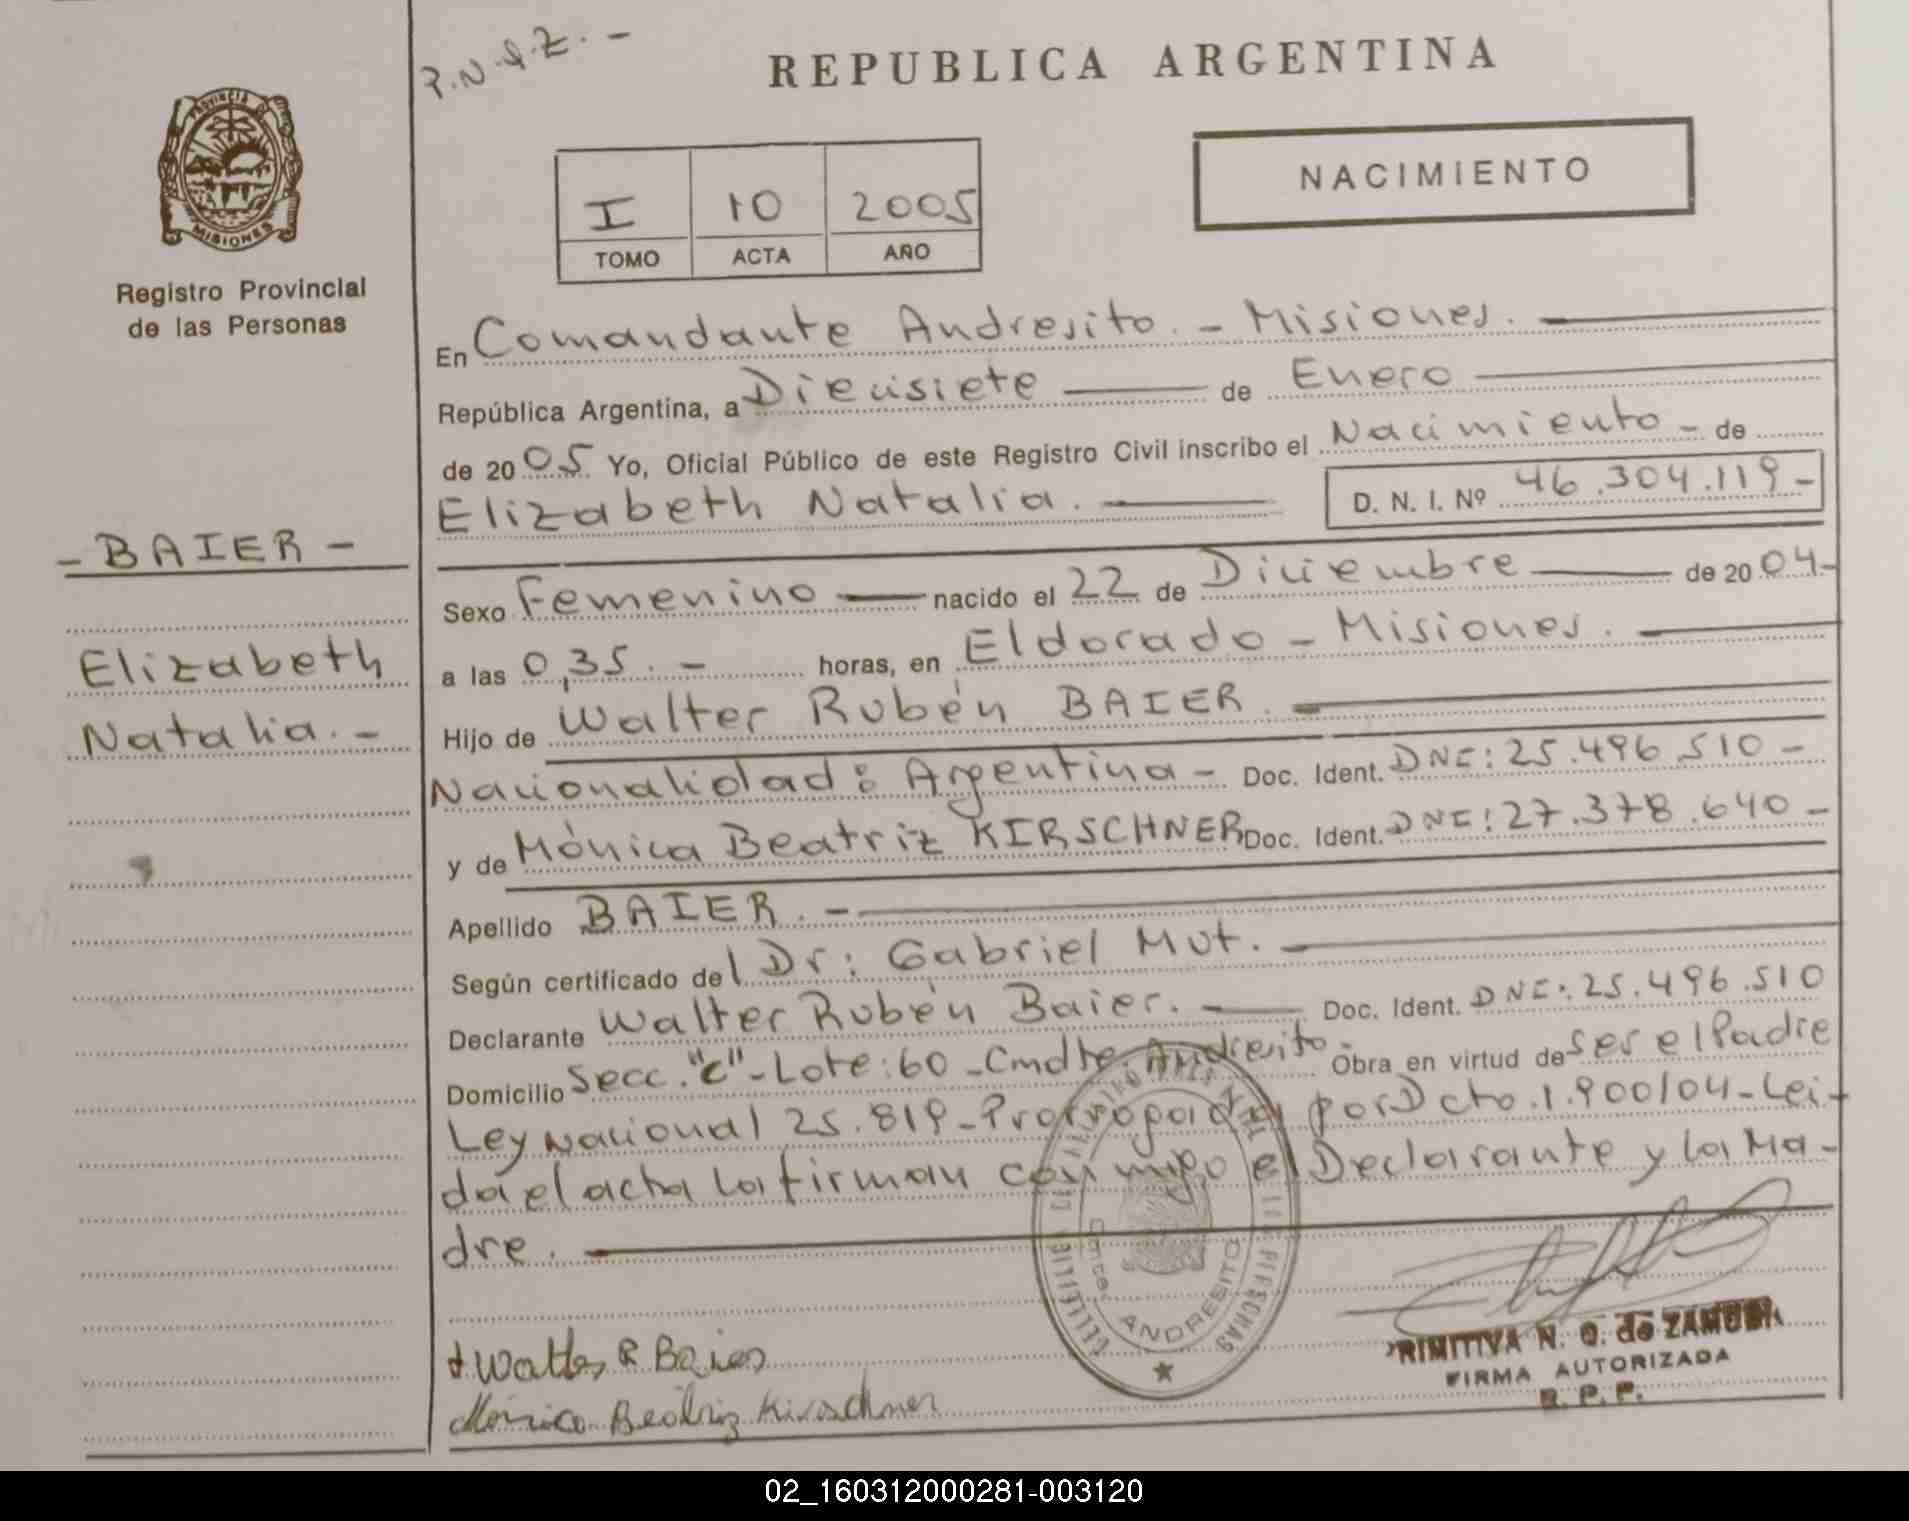 P.N.Q.Z. -
REPUBLICA ARGENTINA
PROVINCIA DE
MISIONES
NACIMIENTO
I 10 2005
TOMO ACTA AÑO
Registro Provincial
de las Personas
En Comandante Andresito. - Misiones.
República Argentina, a Diecisiete de Enero
de 2005. Yo, Oficial Público de este Registro Civil inscribo el Nacimiento - de
Elizabeth Natalia. D. N. I. Nº 46.304.119 -
- BAIER -
Elizabeth
Natalia. -
Sexo Femenino nacido el 22 de Diciembre de 2004-
a las 0,35. - horas, en Eldorado - Misiones.
Hijo de Walter Rubén BAIER.
Nacionalidad: Argentina - Doc. Ident. DNI: 25.496.510 -
y de Mónica Beatriz KIRSCHNER Doc. Ident. DNI: 27.378.640 -
Apellido BAIER. -
Según certificado del Dr: Gabriel Mut.
Declarante Walter Rubén Baier. Doc. Ident. DNI: 25.496.510
Domicilio Secc. "C" - Lote: 60 - Cmdte Andresito. Obra en virtud de ser el Padre
Ley Nacional 25.819 - Prorrogada por Dcto. 1.900/04 - Lei-
da el acta la firman conmigo el Declarante y la Ma-
dre.
ANDRESITO
Walter R Baier
Mónica Beatriz Kirschner
N. Q. de
FIRMA AUTORIZADA
R. P. P.
02_160312000281-003120